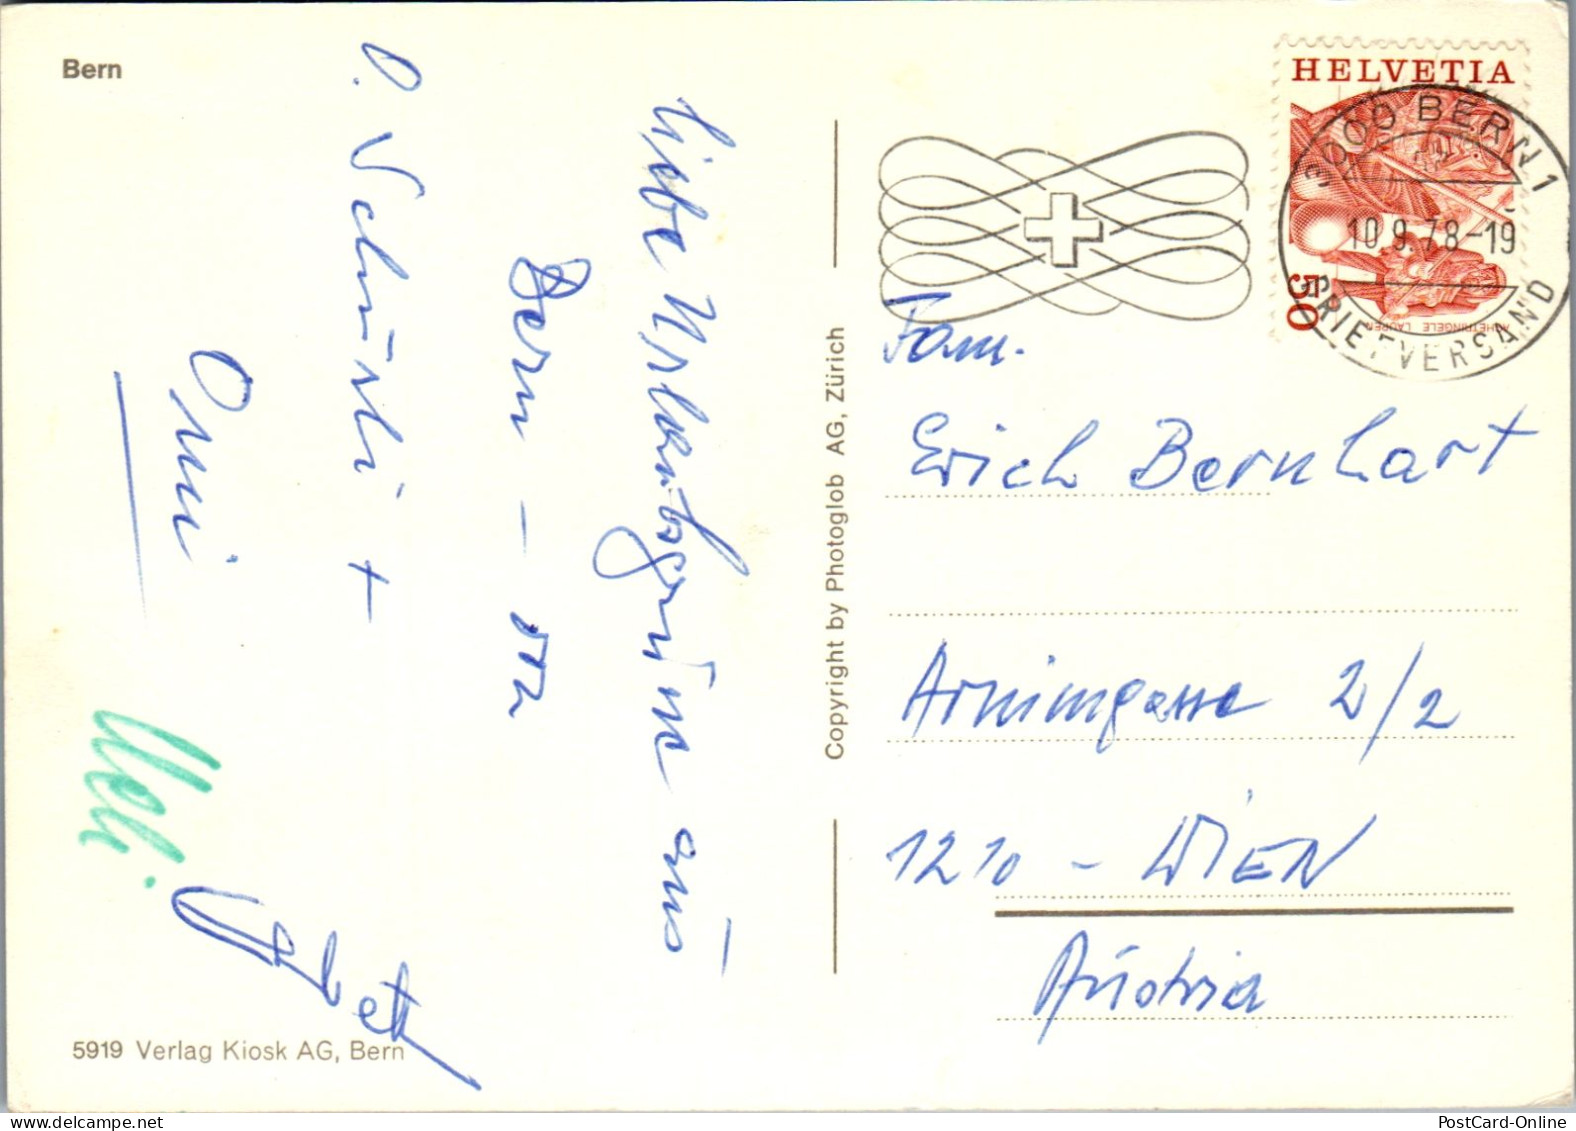 Bern
Liebe Urlaubsgrüsse aus
Bern –
O. Schnürli +
Omi
Ueli
5919 Verlag Kiosk AG, Bern
Copyright by Photoglob AG, Zürich
HELVETIA
50
ACHETRINGELE LAUPEN
3000 BERN 1
10.9.78-19
BRIEFVERSAND
Fam.
Erich Bernhart
Arnimgasse 2/2
1210 - WIEN
Austria
PostCard-Online